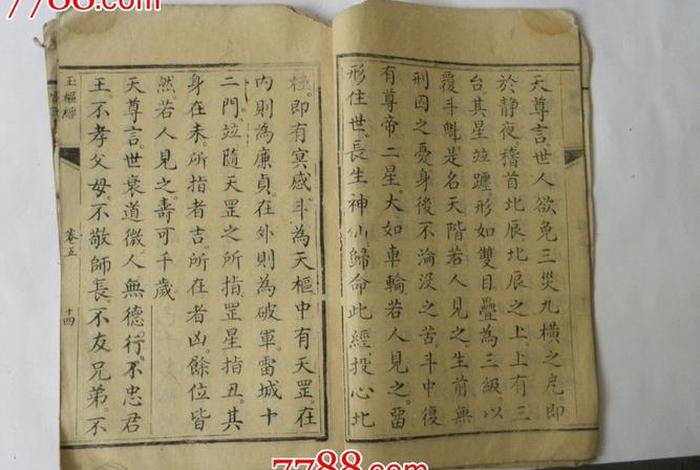 7788.com
天尊言。世人欲免三災九横之厄。即
於静夜稽首北辰。北辰之上。上有三
台。其星並躔。形如雙目。疊為三級。以
覆斗魁。是名天階。若人見之。生前無
刑囚之憂。身後不淪没之苦。斗中復
有尊帝二星。大如車輪。若人見之。畱
形住世。長生神仙。歸命此經。投心北
極。即有冥感。斗為天樞。中有天罡。在
内則為廉貞。在外則為破軍。雷城十
二門。竝隨天罡之所指。罡星指丑。其
身在未。所指者吉。所在者凶。餘位皆
然。若人見之。壽可千歲
天尊言。世衰道微。人無德行。不忠君
王。不孝父母。不敬師長。不友兄弟。不
玉樞經
卷五
十四
7788.com